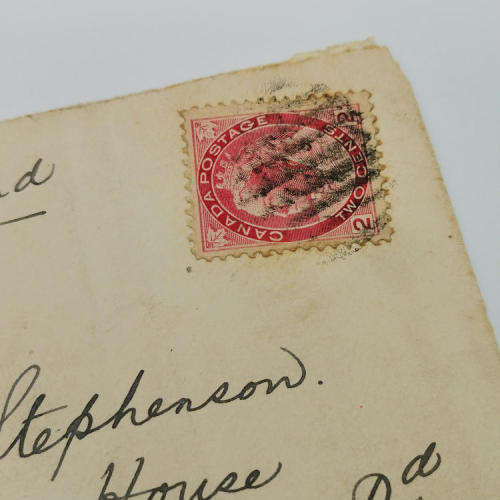 CANADA POSTAGE
TWO CENTS
2 2
Stephenson.
House
Rd